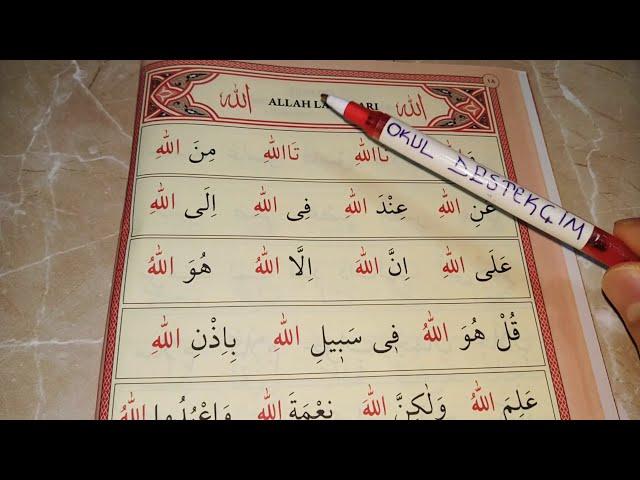 ١٨
الله ALLAH الله
تَااللهِ مِنَ اللهِ
عَنِ اللهِ عِنْدَ اللهِ فِى اللهِ اِلَى اللهِ
عَلَى اللهِ اِنَّ اللهَ اِلَّا اللهُ هُوَ اللهُ
قُلْ هُوَ اللهُ فٖى سَبٖيلِ اللهِ بِاِذْنِ اللهِ
عَلِمَ اللهُ وَلٰكِنَّ اللهَ نِعْمَةَ اللهِ وَاعْبُدُوا اللهَ
OKUL DESTEKÇİM